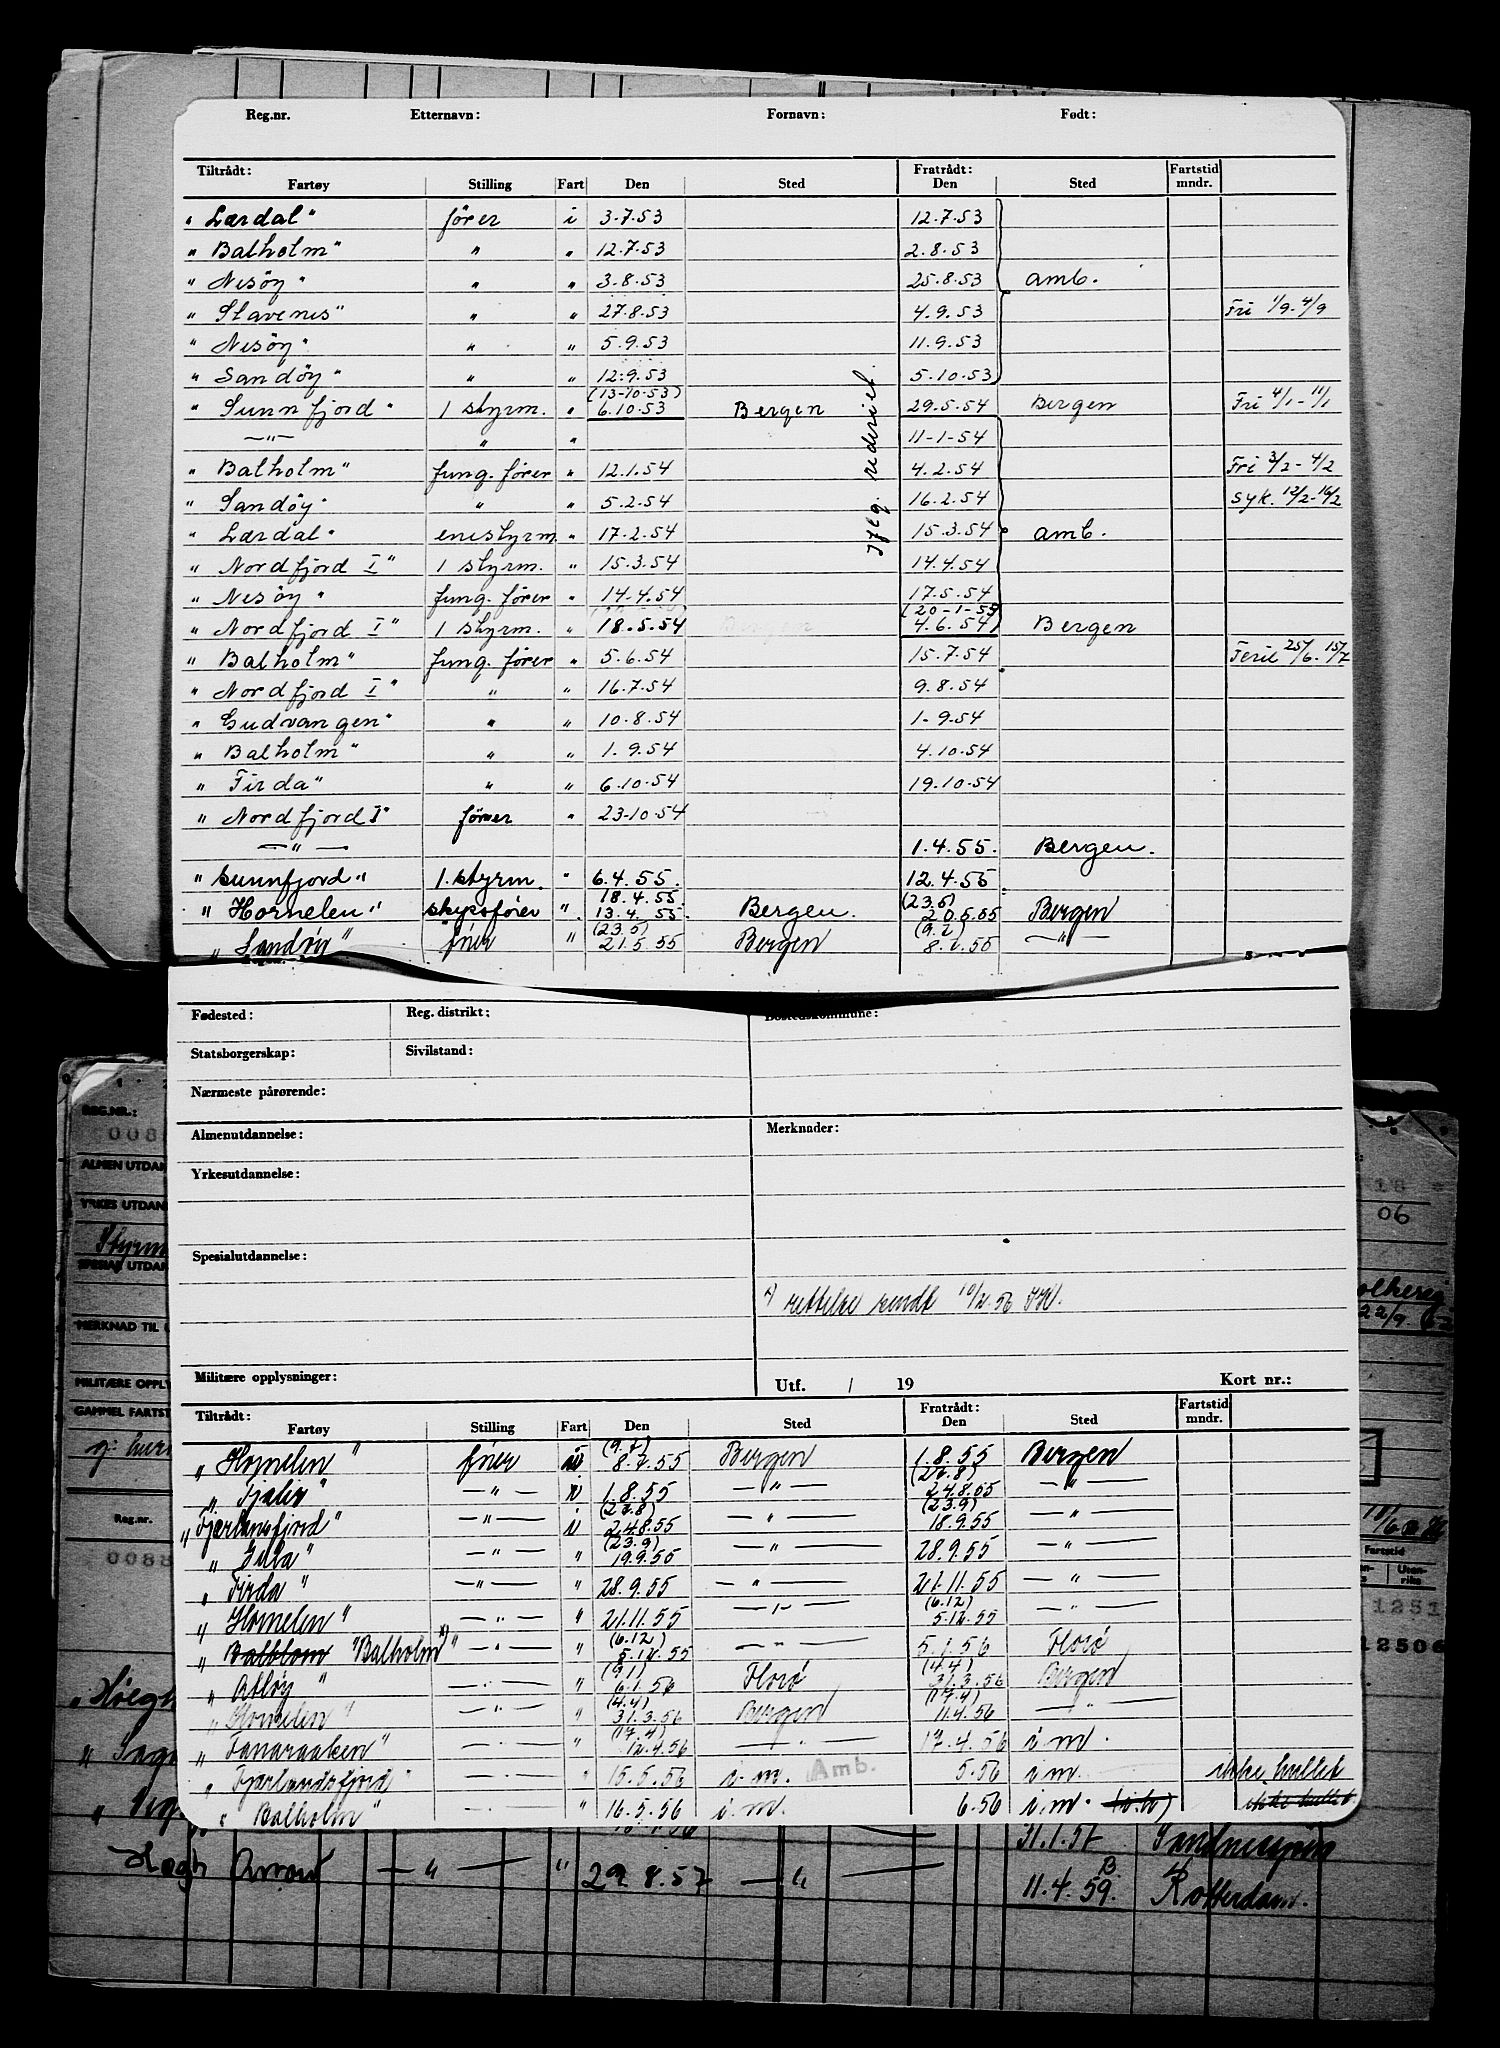 Reg.nr. Etternavn: Fornavn: Født:
Tiltrådt: Fratrådt: Fartstid
Fartøy Stilling Fart Den Sted Den Sted mndr.
" Lærdal" fører i 3-7-53 12.7.53
" Balholm" " " 12.7.53 2.8.53
" Nesöy" " " 3.8.53 25.8.53 amb.
" Stavenes" " " 27.8.53 4.9.53 Fri 1/9-4/9
" Nesöy" " " 5.9.53 11.9.53
" Sandöy" " " 12.9.53 5.10.53
(13-10-53)
" Sunnfjord" 1 styrm. " 6.10.53 Bergen 29.5.54 Bergen Fri 4/1-11/1
—"— " " 11-1-54
" Balholm" fung. fører " 12.1.54 4.2.54 Fri 3/2-4/2
" Sandöy" " " 5.2.54 16.2.54 Syk. 12/2-16/2
" Lærdal" enestyrm. " 17.2.54 15.3.54 amb.
" Nordfjord I" 1 styrm. " 15.3.54 14.4.54
" Nesöy" fung. fører " 14.4.54 17.5.54
(20-1-55)
" Nordfjord I" 1 styrm. " 18.5.54 4.6.54 Bergen
" Balholm" fung. fører " 5.6.54 15.7.54 Ferie 25/6-15/7
" Nordfjord I" " " 16.7.54 9.8.54
" Gudvangen" " " 10.8.54 1-9.54
" Balholm" " " 1.9.54 4.10.54
" Firda" " " 6.10.54 19.10.54
" Nordfjord I" fører " 23-10-54
—"— 1.4.55. Bergen.
" Sunnfjord" 1. styrm. " 6.4.55. 12.4.55
18.4.55 (23.5)
" Hornelen" skipsfører " 13.4.55. Bergen. 20.5.55 Bergen
(23.5) (9.7)
" Sandöy" fører " 21.5.55 Bergen 8.7.55 —"—
Iflg. rederiet.
Fødested: Reg. distrikt: Bostedskommune:
Statsborgerskap: Sivilstand:
Nærmeste pårørende:
Almenutdannelse: Merknader:
Yrkesutdannelse:
Spesialutdannelse:
x) rettelse sendt 10/2.56
Militære opplysninger: Utf. / 19 Kort nr.:
Tiltrådt: Fratrådt: Fartstid
Fartøy Stilling Fart Den Sted Den Sted mndr.
(9.7)
" Hornelen" fører 8.7.55 Bergen 1.8.55 Bergen
(27.8)
" Fjaler" —"— i 1.8.55 —"— 24.8.55 —"—
(27.8) (23.9)
" Fjærlandsfjord" —"— i 24.8.55 —"— 18.9.55 —"—
(23.9)
" —"— " 19.9.55 —"— 28.9.55 —"—
" Firda" —"— " 28.9.55 —"— 21.11.55 —"—
(6.12)
" Hornelen" —"— " 21.11.55 —"— 5.12.55 —"—
(6.12)
" Balblom "Balholm" x) —"— " 5.12.55 —"— 5.1.56 Florö
(9.1) (4.4)
" Atlöy" —"— " 6.1.56 Florö 31.3.56 Bergen
(4.4) (17.4)
" Hornelen" —"— " 31.3.56 Bergen 11.4.56 —"—
(17.4)
" Fanaraaken" —"— " 12.4.56 —"— 17.4.56 i.m.
" Fjærlandsfjord" —"— " 15.5.56 i.m. Amb. 5.56 i m. ikke hullet
" Balholm" —"— " 16.5.56 i.m. 6.56 i.m. ikke hullet
REG.NR.:
008
ALMEN UTDAN
YRKES UTDAN
Styrm
SPESIAL UTDAN
MERKNAD TIL
MILITÆRE OPPLY
GAMMEL FARTST
Reg.nr.
0088
18
06
22/9.
Fartstid
Uten-
riks
1251
12506
" Höegh
31.1.57
Höegh —"— " 29.8.57 —"— 11.4.59. B Rotterdam.